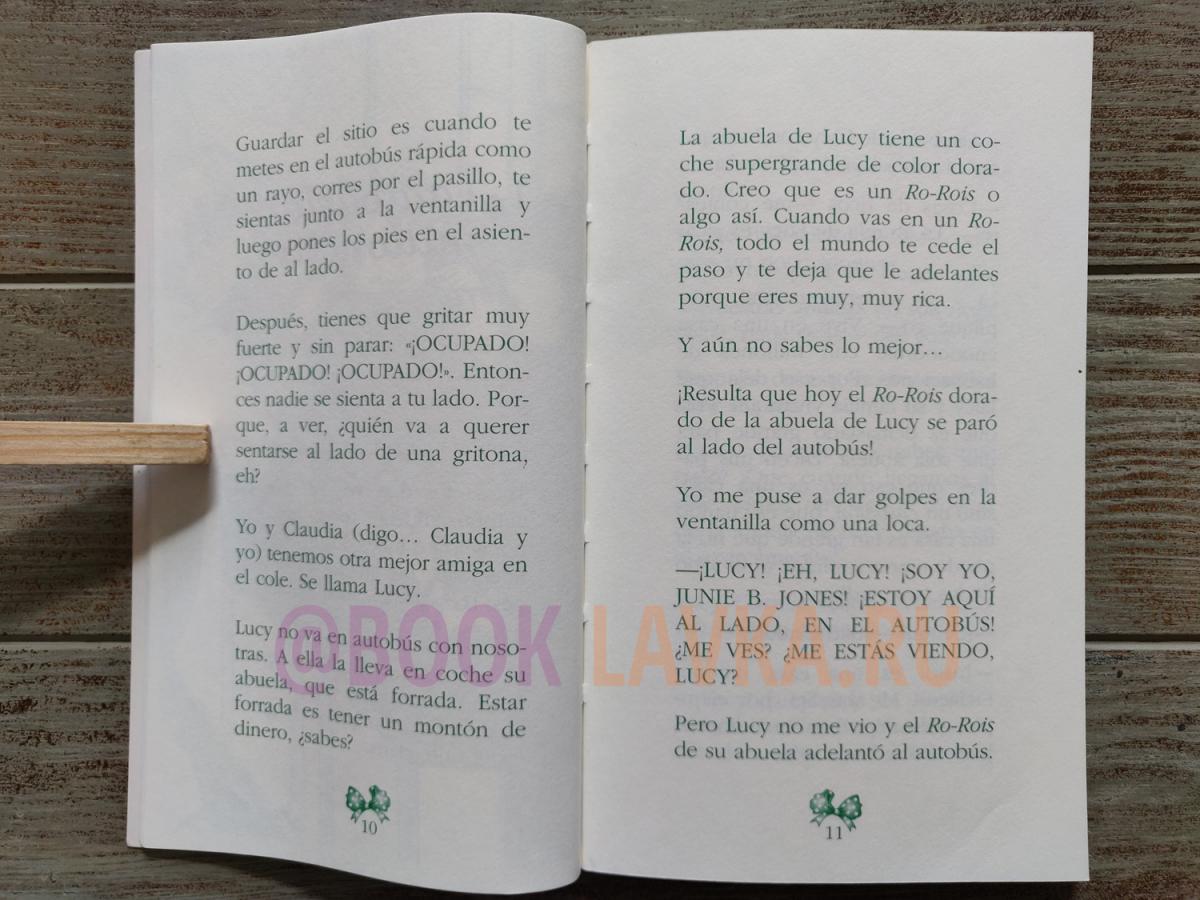 Guardar el sitio es cuando te
metes en el autobús rápida como
un rayo, corres por el pasillo, te
sientas junto a la ventanilla y
luego pones los pies en el asien-
to de al lado.
Después, tienes que gritar muy
fuerte y sin parar: «¡OCUPADO!
¡OCUPADO! ¡OCUPADO!». Enton-
ces nadie se sienta a tu lado. Por-
que, a ver, ¿quién va a querer
sentarse al lado de una gritona,
eh?
Yo y Claudia (digo... Claudia y
yo) tenemos otra mejor amiga en
el cole. Se llama Lucy.
Lucy no va en autobús con noso-
tras. A ella la lleva en coche su
abuela, que está forrada. Estar
forrada es tener un montón de
dinero, ¿sabes?
10
La abuela de Lucy tiene un co-
che supergrande de color dora-
do. Creo que es un Ro-Rois o
algo así. Cuando vas en un Ro-
Rois, todo el mundo te cede el
paso y te deja que le adelantes
porque eres muy, muy rica.
Y aún no sabes lo mejor...
¡Resulta que hoy el Ro-Rois dora-
do de la abuela de Lucy se paró
al lado del autobús!
Yo me puse a dar golpes en la
ventanilla como una loca.
—¡LUCY! ¡EH, LUCY! ¡SOY YO,
JUNIE B. JONES! ¡ESTOY AQUÍ
AL LADO, EN EL AUTOBÚS!
¿ME VES? ¿ME ESTÁS VIENDO,
LUCY?
Pero Lucy no me vio y el Ro-Rois
de su abuela adelantó al autobús.
11
@BOOK LAVKA.RU